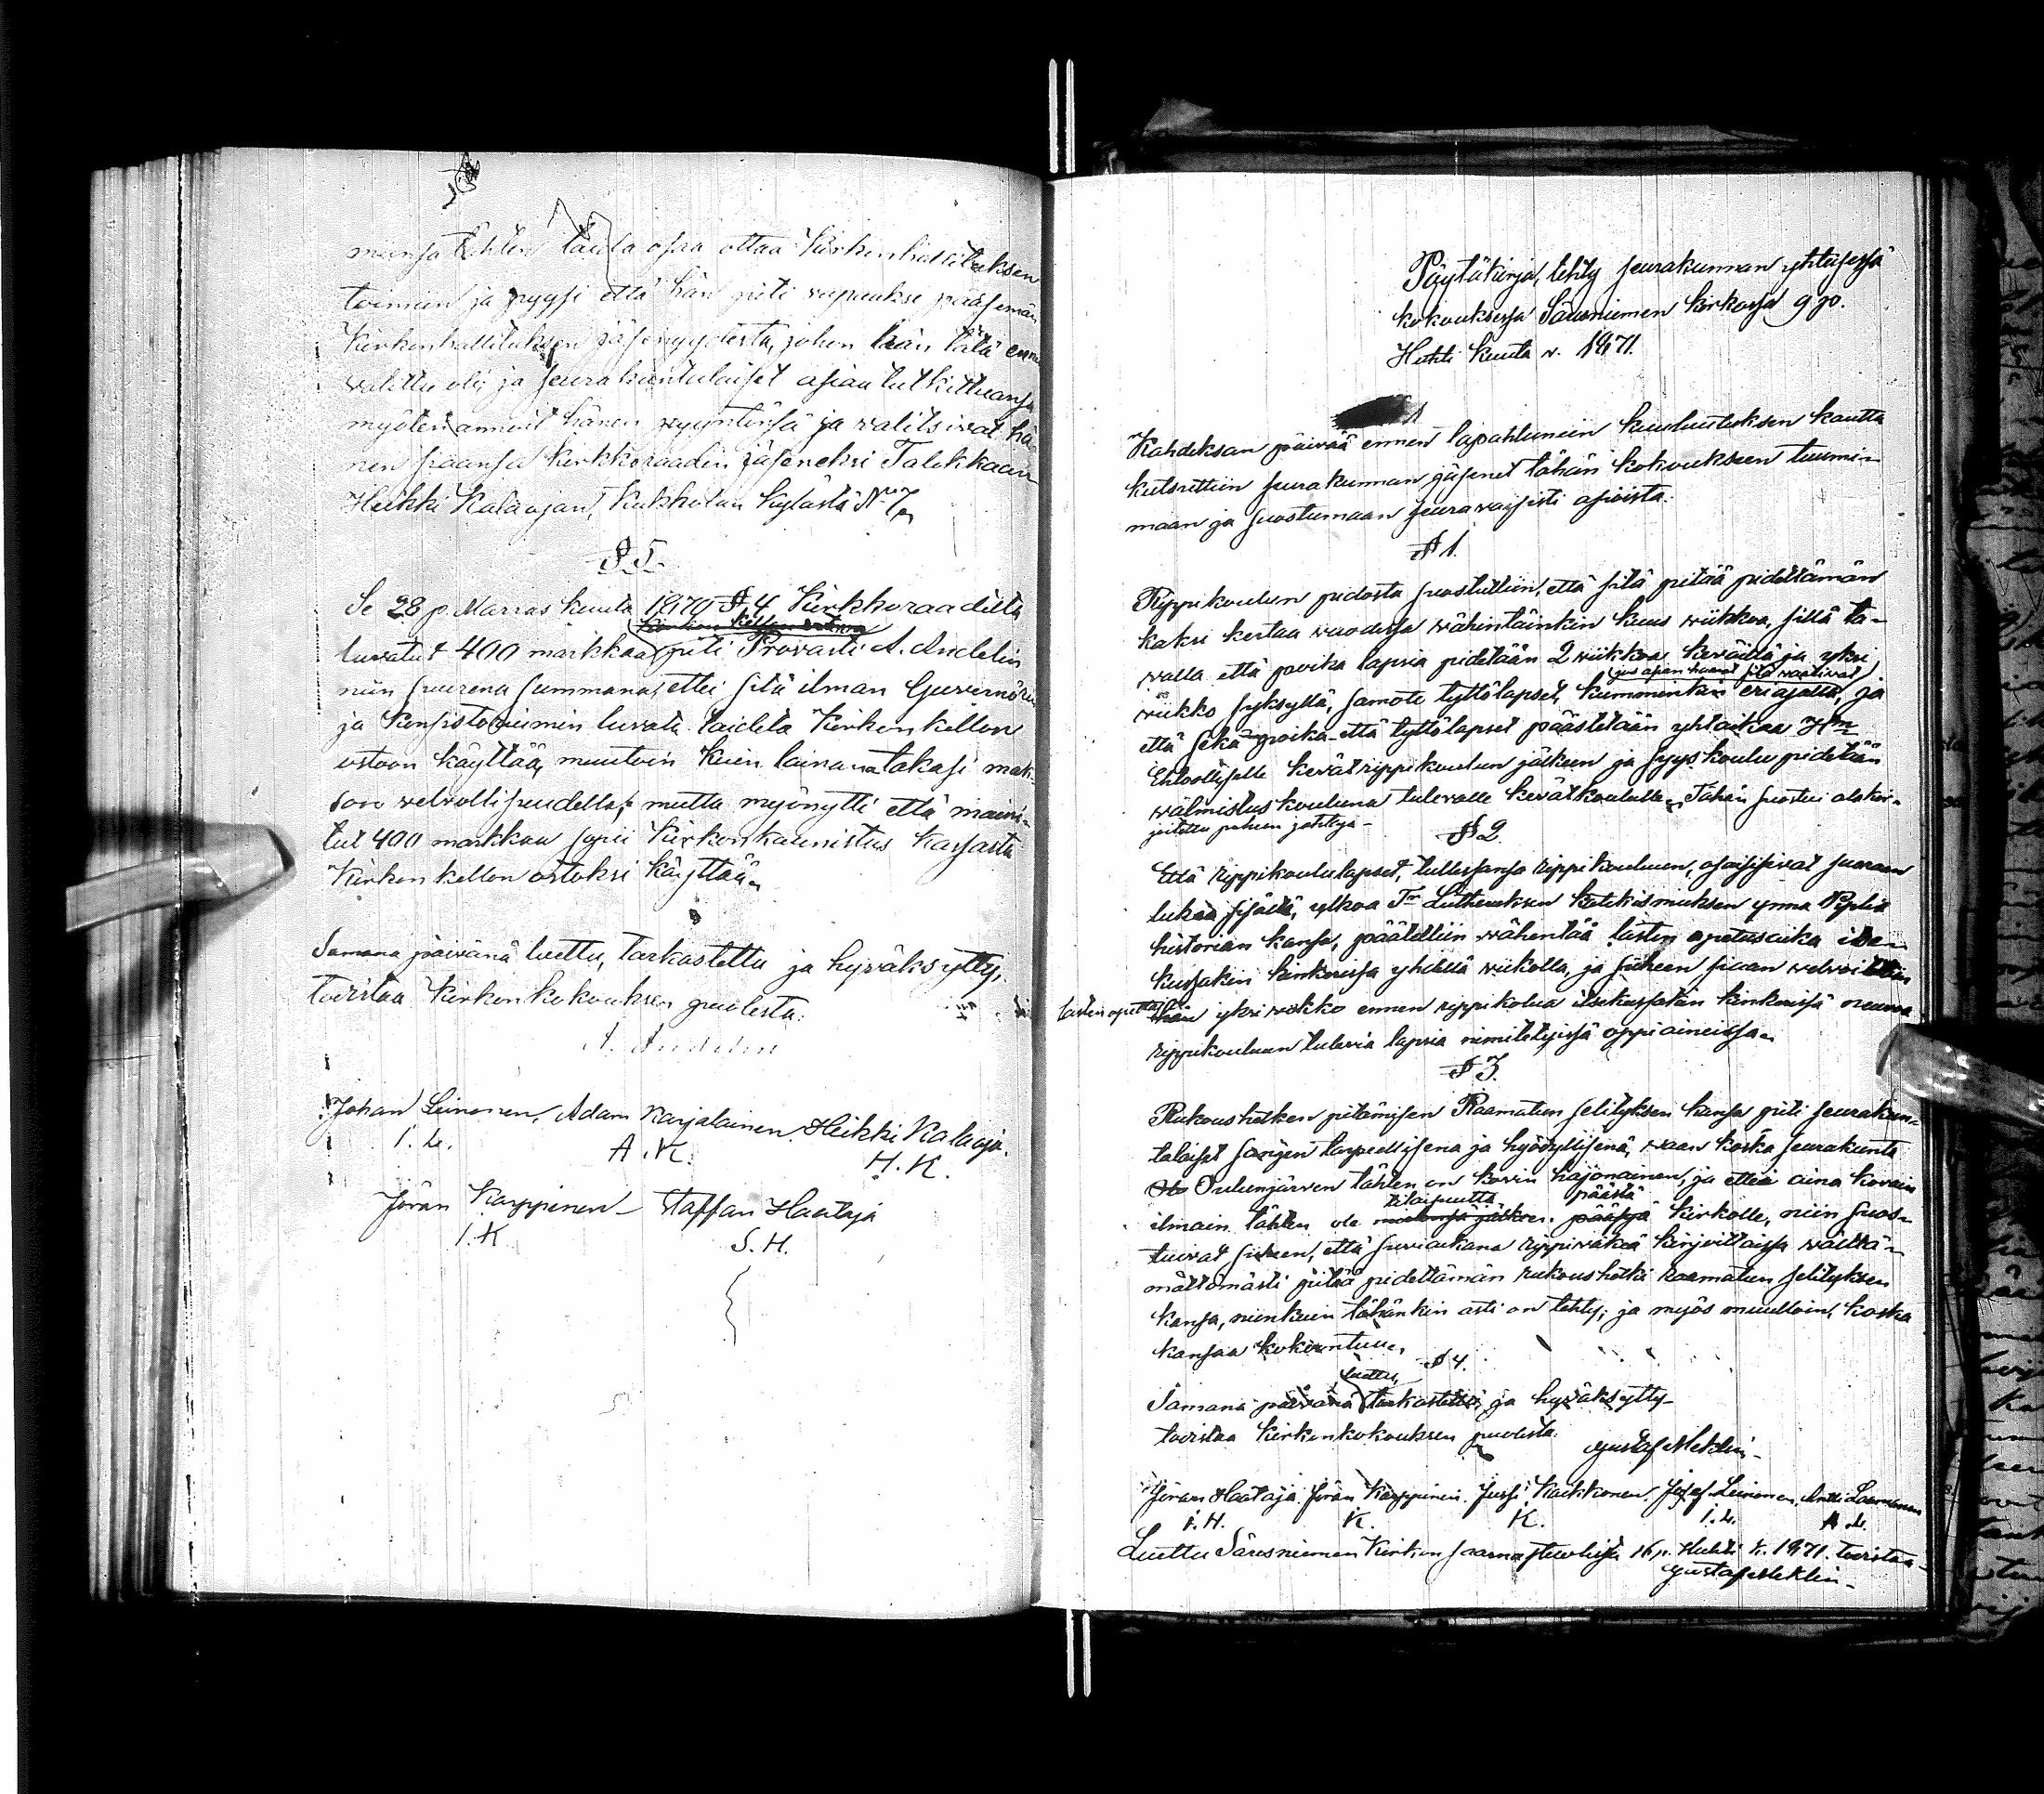 mensa tähten taida osaa ottaa Kirkonhallituksen
toimiin ja pyysi että hän piti vapauksi pääsemän
Kirkonhallituksen jäsenyydestä, johon hän tätä ennen
valittu oli; ja seurakuntalaiset asian tutkittuansa
myöten annoit hänen pyyntönsä ja valitsivat hä-
nen siaansa kirkkoraadin jäseneksi Talokkaan
Heikki Kalaojan, Kukkolan kylästä No 7.
§ 5.
Se 28 p. Marras kuuta 1870 § 4 Kirkkoraadilta
luvatut 400 markkaa piti Provasti A. Andelin
niin suurena summana, ettei sitä ilman Guvernörin
ja Konsistoriumin luvata taideta Kirkon kellon
ostoon käyttää, muutoin kuin lainana takasi mak-
son velvollisuudella; mutta myönytti että maini-
tut 400 markkaa sopii Kirkonkaunistus kassasta
Kirkon kellon ostoksi käyttää.
Samana päivänä luettu, tarkastettu ja hyväksytty,
toistaa Kirkonkokouksen puolesta:
A. Andelin
Johan Leinonen, Adam Karjalainen. Heikki Kalaoja.
I. L. A. K. H. K.
Jöran Karppinen Staffan Haataja
I. K. S. H.
Pöytäkirja, tehty seurakunnan yhteisessä
kokouksessa Säresniemen kirkossa 9 p.
Huhti kuuta v. 1871.
Kahdeksan päivää ennen tapahtuneen kuuluutuksen kautta
kutsuttiin seurakunnan jäsenet tähän kokoukseen tuumi-
maan ja suostumaan seuravaisisti asioista.
§ 1.
Rippikoulun pidosta suostuttiin, että sitä pitää pidettämän
kaksi kertaa vuodessa vähintäinkin kuus viikkoa, sillä ta-
valla että poika lapsia pidetään 2 viikkoa keväillä ja yksi
(jos asian haarat sitä vaativat)
viikko syksyllä, samote tyttölapset, kumonenkin eriajalla, ja
että sekä poika- että tyttölapset päästetään yhtaikaa Hrn
Ehtoolliselle kevätrippikoulun jälkeen ja syyskoulu pidetään
valmistuskouluna tulevalle kevätkoululle. Tähän suostui alakir-
joitettu puheen johtaja
§ 2.
Että rippikoululapset, tullessansa rippikouluun, osaisisivat suoraan
lukea sisältä, ulkoa Tr Lutheruksen Katekismuksen ynnä Piplia
historian kansa, päätettiin vähentää lasten opetusaika itse-
kussakin kinkerissä yhdellä viikolla, ja siiheen siaan velvoitettiin
lasten opettaja
yksi viikko ennen rippikolua itsekussakin kinkerissä neuvoa
rippikouluun tulevia lapsia nimitetyissä oppiaineissa.
§ 3.
Rukoushetken pitämisen Raamatun selityksen kansa piti seurakun-
talaiset sangen tarpeellisena ja hyödyllisenä, vaan koska seurakunta
Oulunjärven tähten on kovin hajonainen, ja ettei aina kovain
tilaisuutta päästä
ilmain tähten ole mielensä jälkeen pääsyä kirkolle, niin suos-
tuivat siiheen, että suviaikana rippiväkeä kirjoittaissa välttä-
mättömästi pitää pidettämän rukoushetki raamatun selityksen
kansa, niinkuin tähänkin asti on tehty; ja myös muulloin, koska
kansaa kokountuu.
§ 4.
luettu,
Samana päivänä tarkastettu ja hyväksytty
toistaa kirkonkokouksen puolesta:
Gustaf Meklin
Jöran Haataja. Jöran Karppinen. Jussi Kaikkonen. Josef Leinonen. Antti
I. H. K. K. I. L. A. L.
Luettu Säresniemen Kirkon saarnastuolista 16 p. Huhti k. 1871. toistaa
Gustaf Meklin